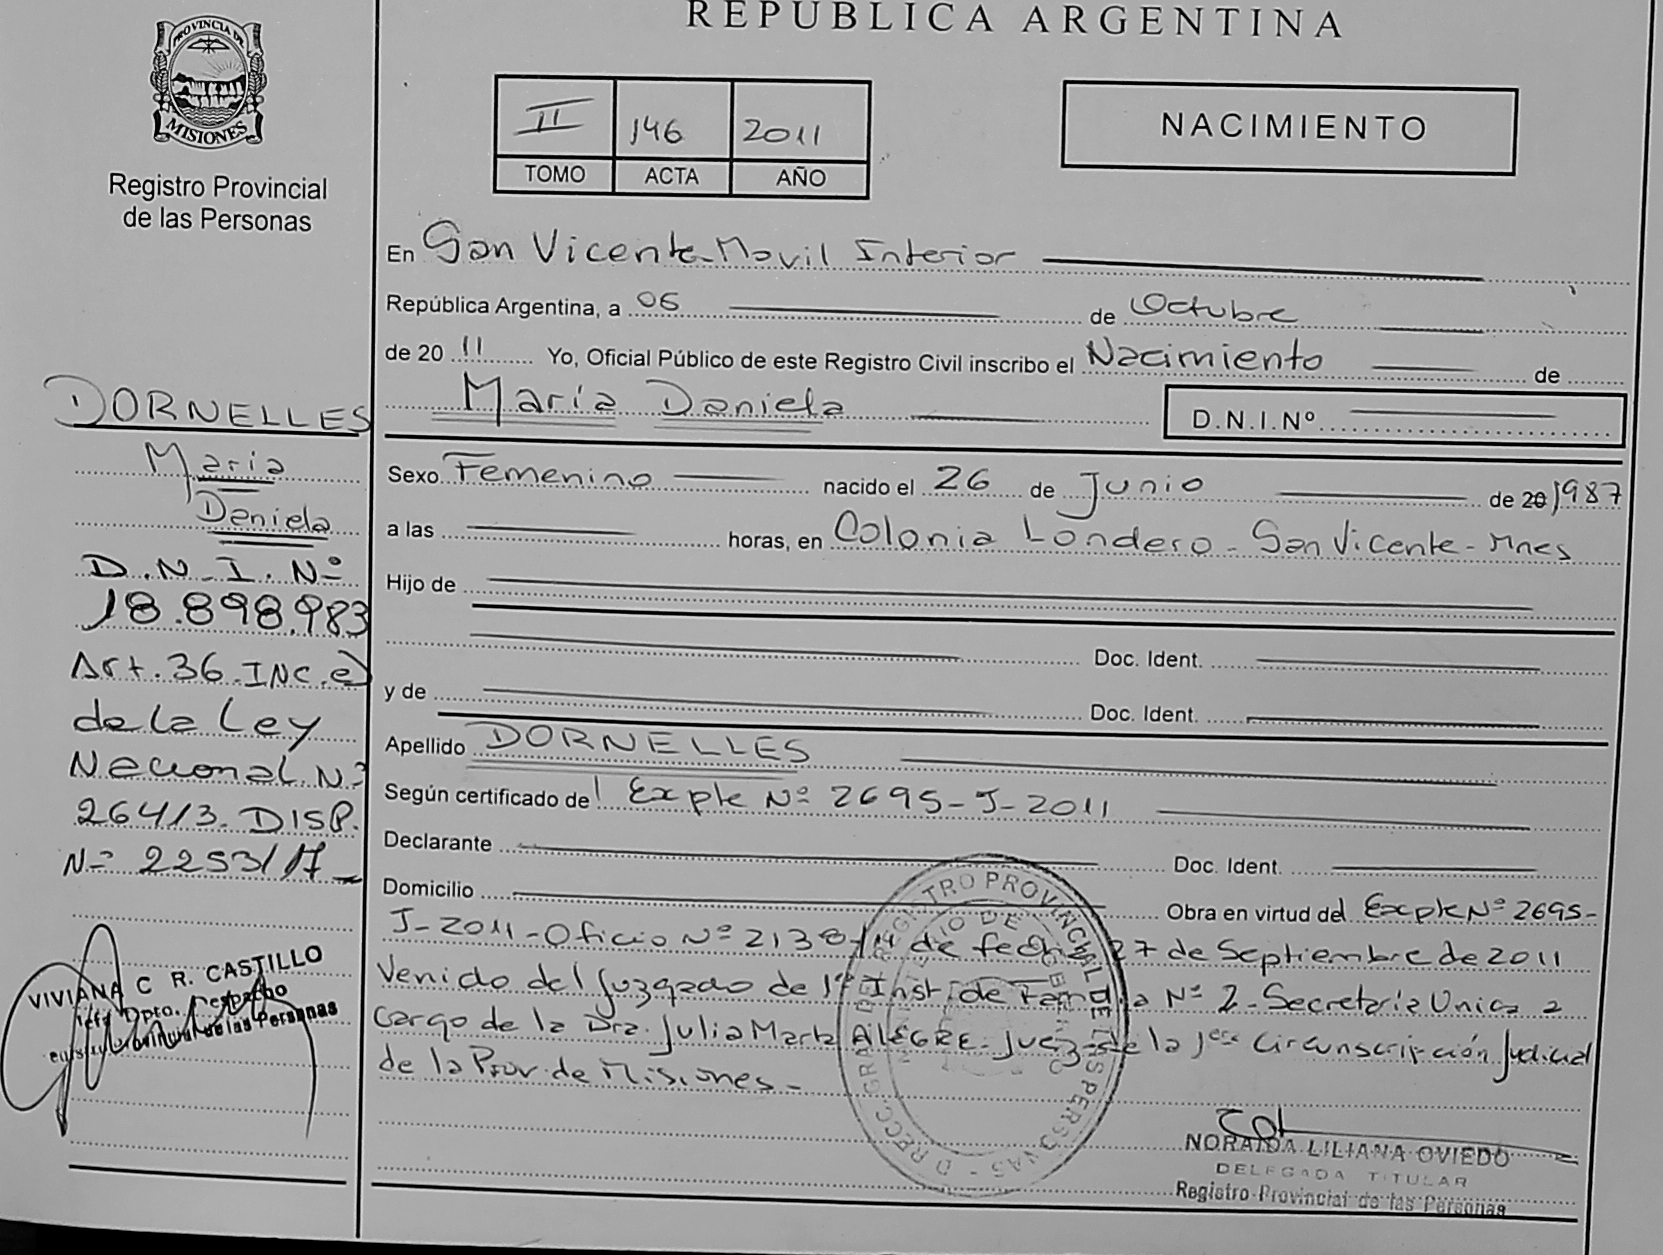 PROVINCIA DE
MISIONES
Registro Provincial
de las Personas
DORNELLES
María
Daniela
D.N.I. Nº
18.898.983
Art. 36 INC. e)
de la Ley
Nacional Nº
26413. DISP.
Nº 2253/17
VIVIANA C R. CASTILLO
Dpto. Despacho
de las Personas
REPUBLICA ARGENTINA
II 146 2011
TOMO ACTA AÑO
NACIMIENTO
En San Vicente-Movil Interior
República Argentina, a 06 de Octubre
de 20 11 Yo, Oficial Público de este Registro Civil inscribo el Nacimiento de
María Daniela D.N.I.Nº
Sexo Femenino nacido el 26 de Junio de 20 1987
a las horas, en Colonia Londero - San Vicente - Mnes
Hijo de
Doc. Ident.
y de
Doc. Ident.
Apellido DORNELLES
Según certificado del Expte Nº 2695-J-2011
Declarante Doc. Ident.
Domicilio Obra en virtud del Expte Nº 2695-
J-2011-Oficio Nº 2138/ de fecha 27 de Septiembre de 2011
Venido del Juzgado de 1º Inst. de Familia Nº 2-Secretaria Unica a
cargo de la Dra. Julia Marta ALEGRE-Juez-de la 1era Circunscripción Judicial
de la Prov. de Misiones-
REGISTRO PROVINCIAL DE LAS PERSONAS
NORAIDA LILIANA OVIEDO
DELEGADA TITULAR
Registro Provincial de las Personas